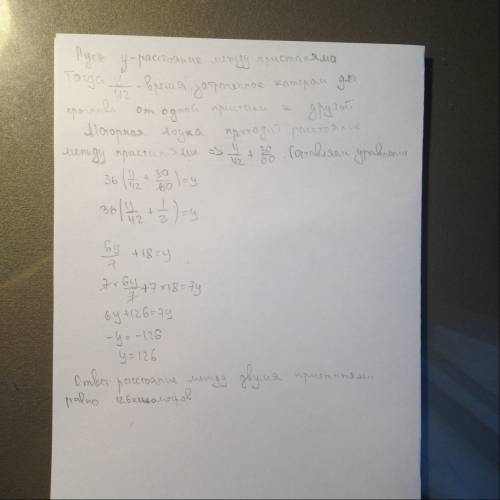 Пусть y-расстояние между пристанями
Тогда y/42 - время, затраченное катером для
от одной пристани к другой
Моторная лодка проходит расстояние
между пристанями => y/42 + 30/60. Составляем уравнение
36(y/42 + 30/60)=y
36(y/42 + 1/2)=y
6y/7 +18=y
7×6y/7+7×18=7y
6y+126=7y
-y=-126
y=126
Ответ: расстояние между двумя
равно 126